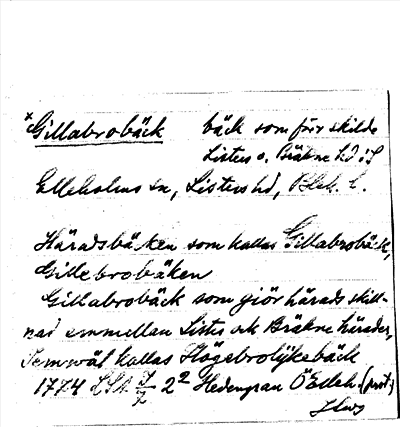 *Gillabrobäck bäck som förr skilde
Listers o. Bräkne hd i S
Elleholms sn, Listers hd, Blek. l.
Häradsbäcken som kallas Gillabrobäck,
Gillebrobäken
Gillabrobäck som giör härads skill-
nad emmellan Listers och Bräkne härader,
Jemwäl kallas Högabrolyckebäck
1774 Hedengran Ö Elleh. (prot.)